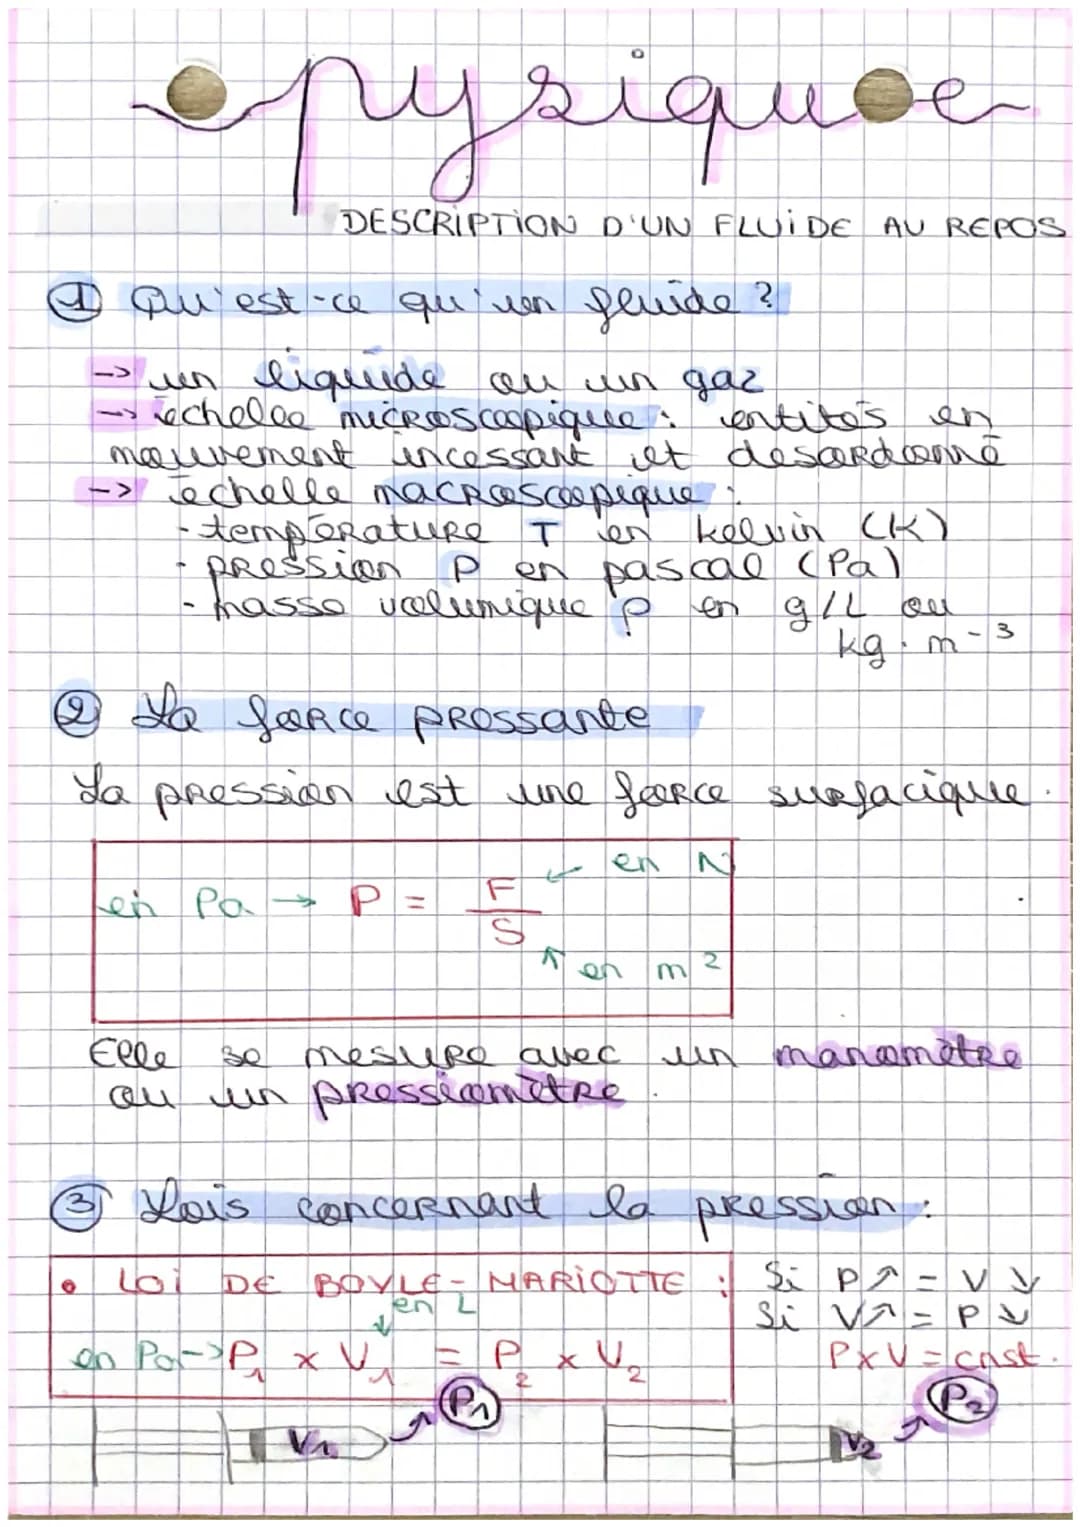 pysique
DESCRIPTION D'UN FLUIDE AU REPOS
① Qu'est-ce qu'un fluide ?
-> un liquide ou un gaz
-> échelle microscopique : entités en
mouvement incessant et desordonné
-> échelle macroscopique :
- température T en kelvin (K)
- pression P en pascal (Pa)
- masse volumique ρ en g/L ou
kg . m-3
② La force pressante
La pression est une force surfacique.
en Pa → P = F/S ← en N
↑ en m²
Elle se mesure avec un manomètre
ou un pressiomètre.
③ Lois concernant la pression :
• LOI DE BOYLE-MARIOTTE :
en L
↓
en Pa -> P₁ x V₁ = P₂ x V₂
Si P ↗ = V ↘
Si V ↗ = P ↘
P x V = cnst.
V₁ → P₁
V₂ → P₂